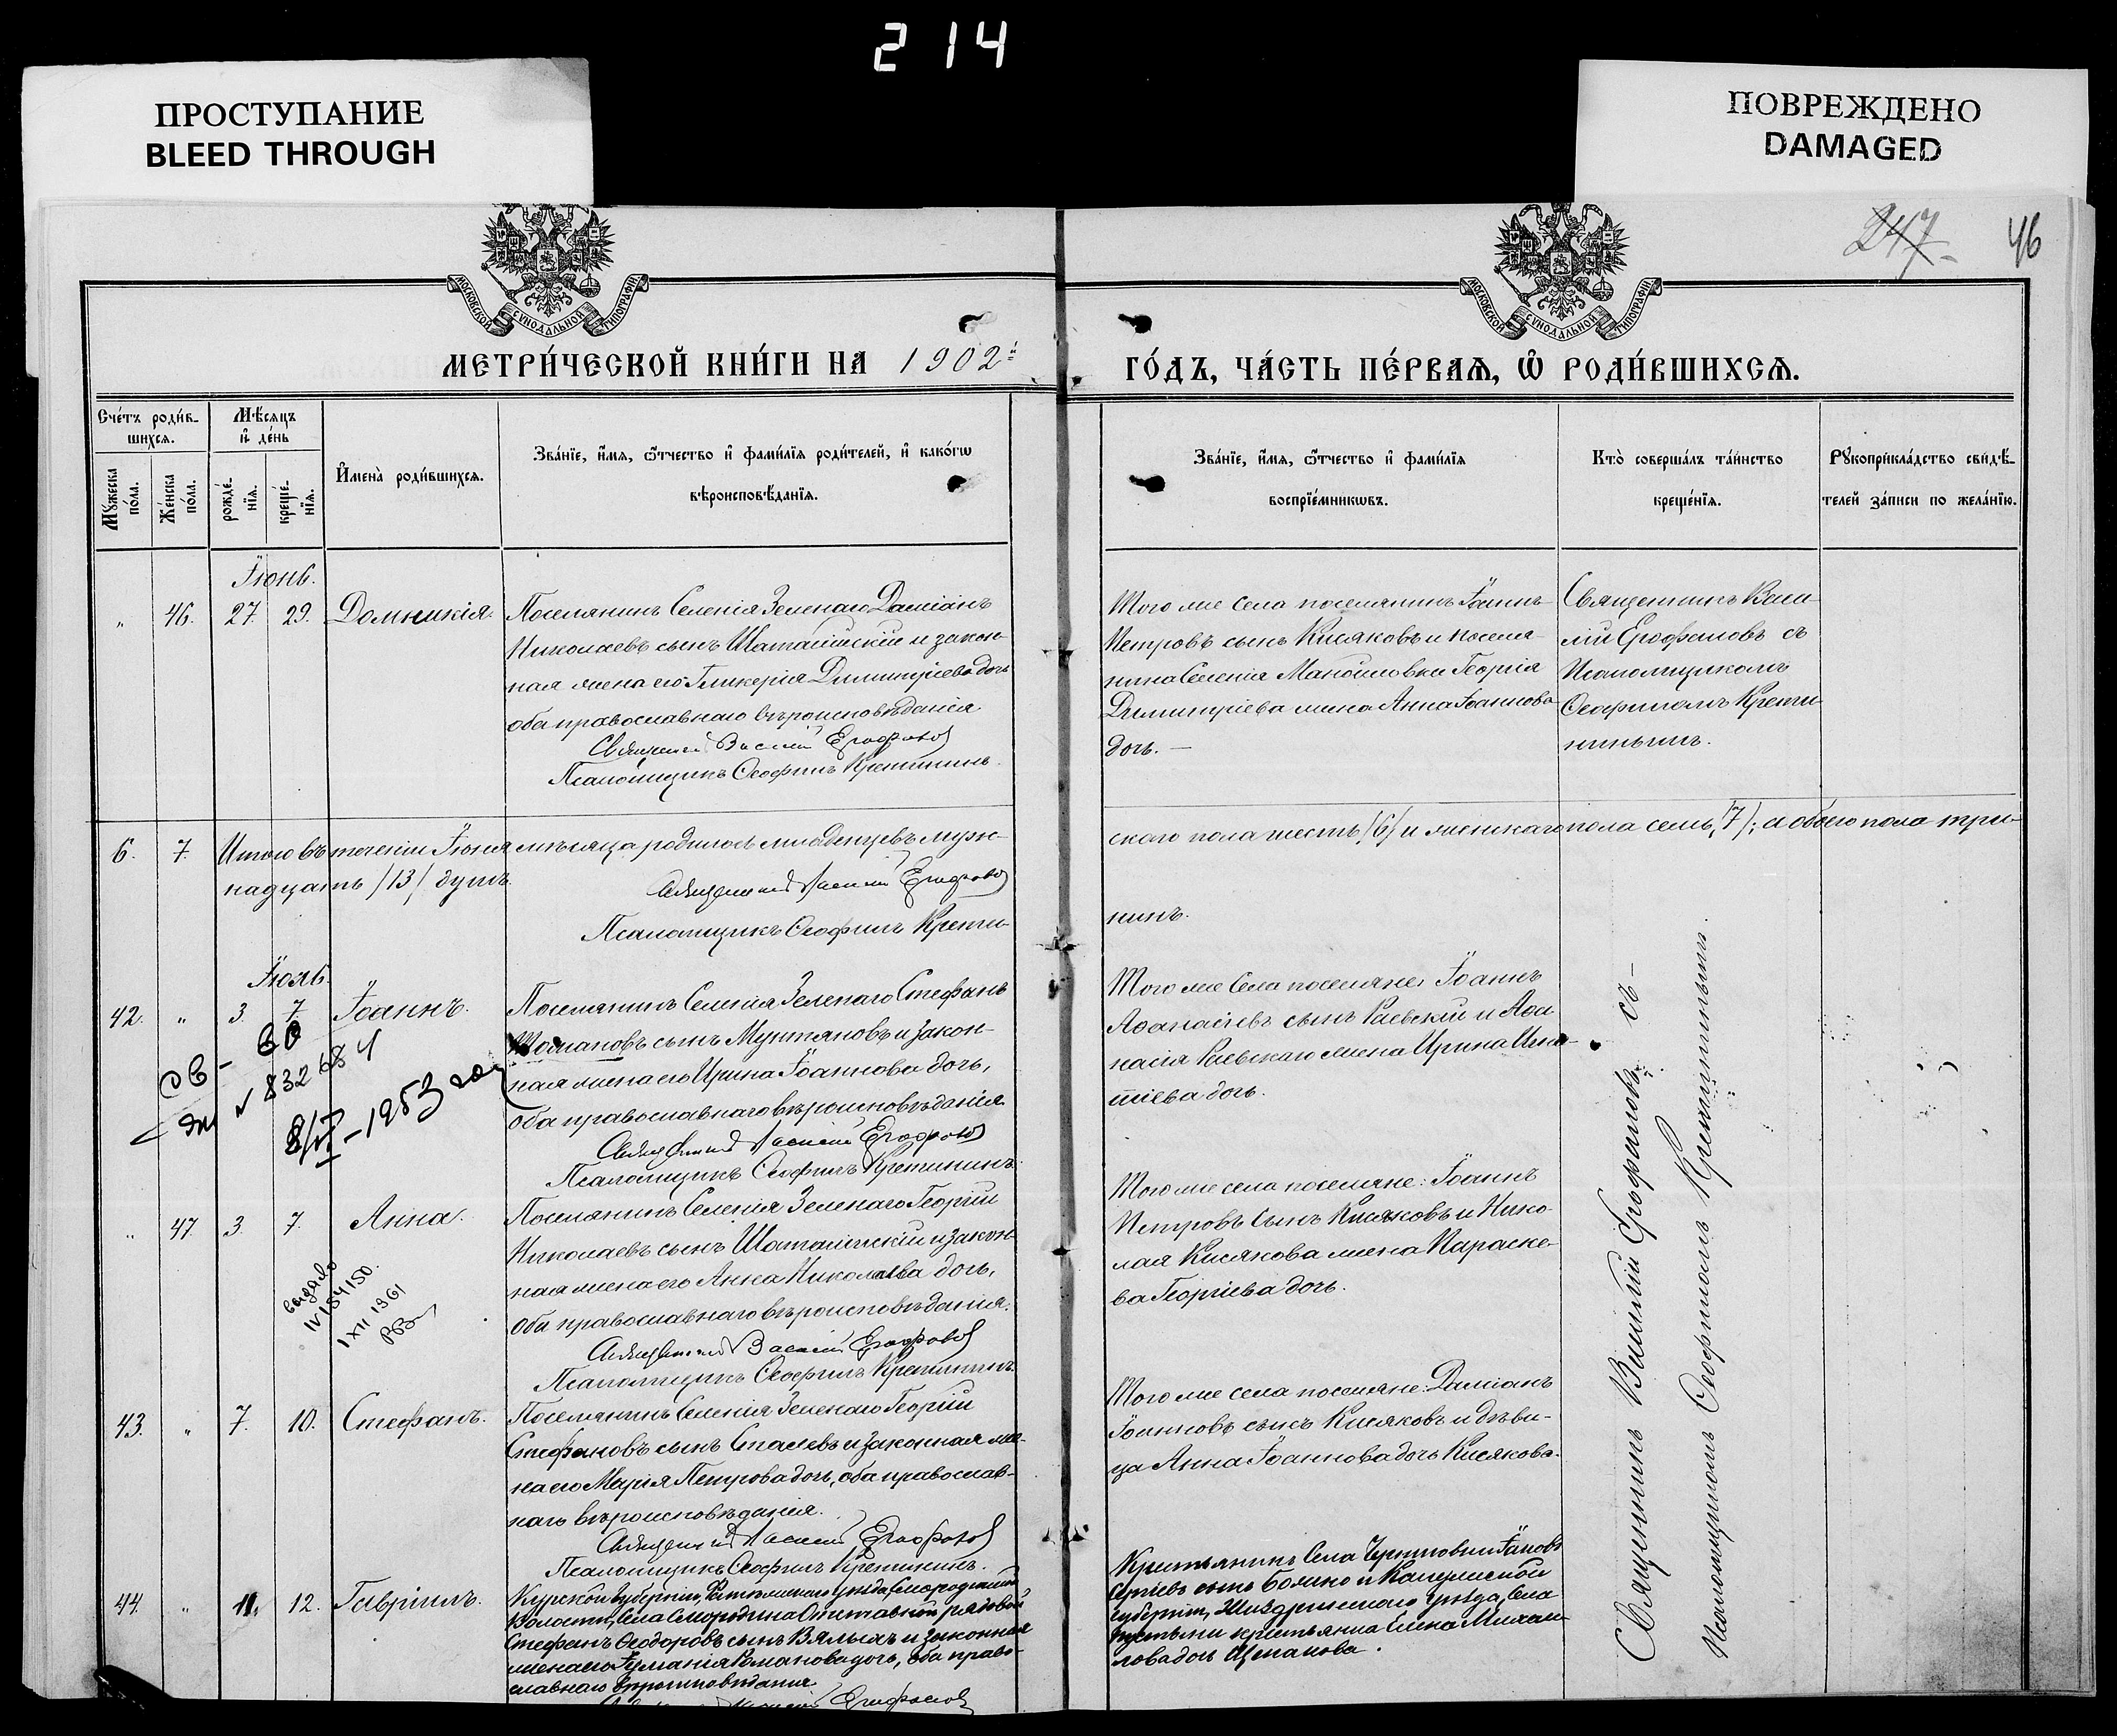 214
ПРОСТУПАНИЕ
BLEED THROUGH
ПОВРЕЖДЕНО
DAMAGED
247
46
МОСКОВСКОЙ СѴНОДАЛЬНОЙ ТИПОГРАФІИ
МОСКОВСКОЙ СѴНОДАЛЬНОЙ ТИПОГРАФІИ
МЕТРИ́ЧЕСКОЙ КНИ́ГИ НА 1902й
ГО́ДЪ, ЧА́СТЬ ПЕ́РВАѦ, Ѽ РОДИ́ВШИХСѦ.
Сче́тъ роди́в-
шихсѧ.
Мѣ́сѧцъ
и҆ де́нь
Мꙋ́жеска по́ла.
Же́нска по́ла.
рожде́-
нїѧ.
креще́-
нїѧ.
И҆мена̀ роди́вшихсѧ.
Зва́нїе, и҆́мѧ, ѻ҆́тчество и҆ фами́лїѧ роди́телей, и҆ како́гѡ
вѣроисповѣ́данїѧ.
Зва́нїе, и҆́мѧ, ѻ҆́тчество и҆ фами́лїѧ
воспрїе́мникѡвъ.
Кто̀ соверша́лъ та́инство
креще́нїѧ.
Рꙋкоприкла́дство свидѣ́-
телей за́писи по жела́нїю.
Іюнь.
" 46. 27. 29. Домникія.
Поселянинъ Селенія Зеленаго Даміанъ
Николаевъ сынъ и закон-
ная жена его Гликерія Димитріева дочь
оба православнаго вѣроисповѣданія
Священникъ Василій Ерофаловъ
Псаломщикъ Ѳеофилъ Кретининъ.
Того же села поселянинъ Іоаннъ
Петровъ сынъ Кисяковъ и поселя-
нина Селенія Мануйловки Георгія
Димитріева жена Анна Іоаннова
дочь. —
Священникъ Васи-
лій Ерофаловъ съ
Псаломщикомъ
Ѳеофиломъ Крети-
нинымъ.
6. 7. Итого въ теченіи Іюня мѣсяца родилось младенцевъ муж-
скаго пола шесть /6/ и женскаго пола семь /7/; а обоего пола три-
надцать /13/ душъ.
Священникъ Василій Ерофаловъ
Псаломщикъ Ѳеофилъ Крети-
нинъ.
Іюль.
42. " 3. 7. Іоаннъ.
Поселянинъ Селенія Зеленаго Стефанъ
сынъ Мунтяновъ и закон-
ная жена его Ирина Іоаннова дочь,
оба православнаго вѣроисповѣданія
Священникъ Василій Ерофаловъ
Псаломщикъ Ѳеофилъ Кретининъ.
Того же Села поселяне: Іоаннъ
Аѳанасіевъ сынъ Раевскій и Аѳа-
насія Раевскаго жена Ирина Игна-
тіева дочь.
№ 832684
1953 год
" 47. 3. 7. Анна.
Поселянинъ Селенія Зеленаго Георгій
Николаевъ сынъ и закон-
ная жена его Анна Николаева дочь,
оба православнаго вѣроисповѣданія.
Священникъ Василій Ерофаловъ
Псаломщикъ Ѳеофилъ Кретининъ.
Того же села поселяне: Іоаннъ
Петровъ сынъ Кисяковъ и Нико-
лая Кисякова жена Параске-
ва Георгіева дочь.
выдано
1 XII 1961
43. " 7. 10. Стефанъ.
Поселянинъ Селенія Зеленаго Георгій
Стефановъ сынъ и законная же-
на его Марія Петрова дочь, оба православ-
наго вѣроисповѣданія.
Священникъ Василій Ерофаловъ
Псаломщикъ Ѳеофилъ Кретининъ.
Того же села поселяне: Даміанъ
Іоанновъ сынъ Кисяковъ и дѣви-
ца Анна Іоаннова дочь Кисякова.
44. " 11. 12. Гавріилъ.
Курской губерніи, уѣзда,
Волости, Села Смородина рядовой
Стефанъ Ѳеодоровъ сынъ и законная
жена его Романова дочь, оба право-
славнаго вѣроисповѣданія.
Крестьянинъ Села
сынъ и
губерніи, уѣзда, Села
крестьянка Елена Михаи-
лова дочь
Священникъ Василій Ерофаловъ съ —
Псаломщикомъ Ѳеофиломъ Кретининымъ.